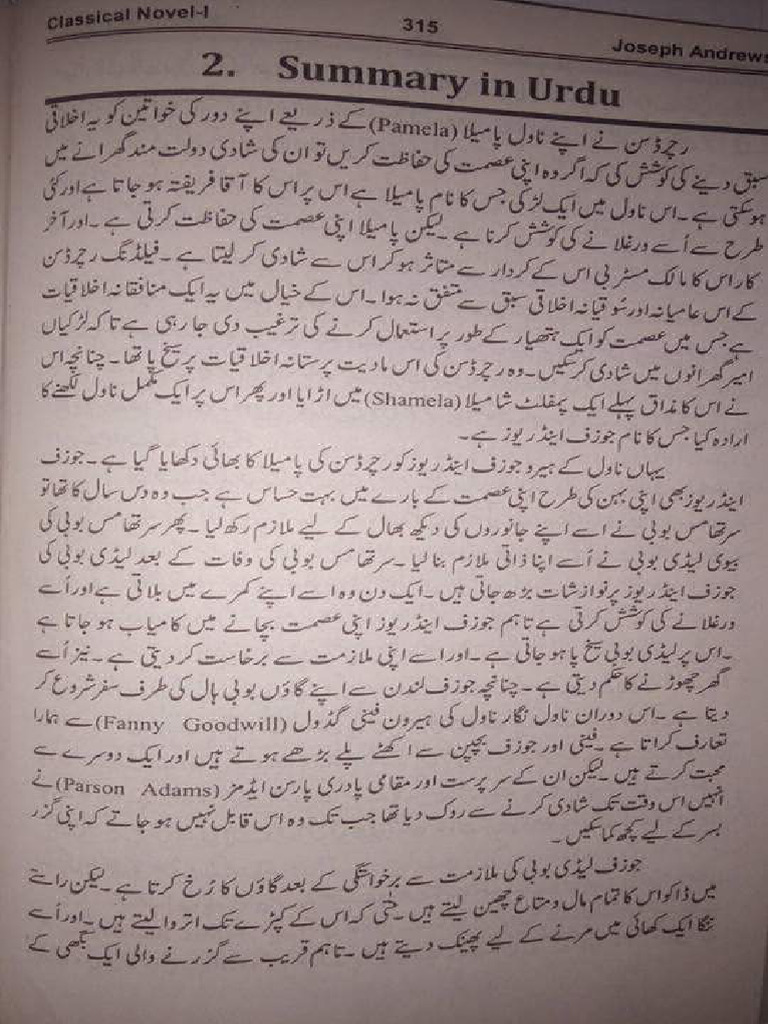 Classical Novel-I
315
Joseph Andrews
2. Summary in Urdu
رچرڈسن نے اپنے ناول پامیلا (Pamela) کے ذریعے اپنے دور کی خواتین کو یہ اخلاقی
سبق دینے کی کوشش کی کہ اگر وہ اپنی عصمت کی حفاظت کریں تو ان کی شادی دولت مند گھرانے میں
ہوسکتی ہے۔ اس ناول میں ایک لڑکی جس کا نام پامیلا ہے اس پر اس کا آقا فریفتہ ہو جاتا ہے اور کئی
طرح سے اُسے ورغلانے کی کوشش کرنا ہے۔ لیکن پامیلا اپنی عصمت کی حفاظت کرتی ہے۔ اور آخر
کار اس کا مالک مسٹر بی اس کے کردار سے متاثر ہو کر اس سے شادی کر لیتا ہے۔ فیلڈنگ رچرڈسن
کے اس عامیانہ اور سُوقیانہ اخلاقی سبق سے متفق نہ ہوا۔ اس کے خیال میں یہ ایک منافقانہ اخلاقیات
ہے جس میں عصمت کو ایک ہتھیار کے طور پر استعمال کرنے کی ترغیب دی جا رہی ہے تا کہ لڑکیاں
امیر گھرانوں میں شادی کر سکیں۔ وہ رچرڈسن کی اس مادیت پرستانہ اخلاقیات پر سیخ پا تھا۔ چنانچہ اس
نے اس کا مذاق پہلے ایک پمفلٹ شامیلا (Shamela) میں اڑایا اور پھر اس پر ایک مکمل ناول لکھنے کا
ارادہ کیا جس کا نام جوزف اینڈریوز ہے۔
یہاں ناول کے ہیرو جوزف اینڈریوز کو رچرڈسن کی پامیلا کا بھائی دکھایا گیا ہے۔ جوزف
اینڈریوز بھی اپنی بہن کی طرح اپنی عصمت کے بارے میں بہت حساس ہے جب وہ دس سال کا تھا تو
سر تھامس بوبی نے اسے اپنے جانوروں کی دیکھ بھال کے لیے ملازم رکھ لیا۔ پھر سر تھامس بوبی کی
بیوی لیڈی بوبی نے اُسے اپنا ذاتی ملازم بنا لیا۔ سر تھامس بوبی کی وفات کے بعد لیڈی بوبی کی
جوزف اینڈریوز پر نوازشات بڑھ جاتی ہیں۔ ایک دن وہ اسے اپنے کمرے میں بلاتی ہے اور اُسے
ورغلانے کی کوشش کرتی ہے تاہم جوزف اینڈریوز اپنی عصمت بچانے میں کامیاب ہو جاتا ہے
۔ اس پر لیڈی بوبی سیخ پا ہو جاتی ہے۔ اور اسے اپنی ملازمت سے برخاست کر دیتی ہے۔ نیز اُسے
گھر چھوڑنے کا حکم دیتی ہے۔ چنانچہ جوزف لندن سے اپنے گاؤں بوبی ہال کی طرف سفر شروع کر
دیتا ہے۔ اس دوران ناول نگار ناول کی ہیروئن فینی گڈول (Fanny Goodwill) سے ہمارا
تعارف کراتا ہے۔ فینی اور جوزف بچپن سے اکھٹے پلے بڑھے ہوتے ہیں اور ایک دوسرے سے
محبت کرتے ہیں۔ لیکن ان کے سر پرست اور مقامی پادری پارسن ایڈمز (Parson Adams) نے
انہیں اس وقت تک شادی کرنے سے روک دیا تھا جب تک وہ اس قابل نہیں ہو جاتے کہ اپنی گزر
بسر کے لیے کچھ کما سکیں۔
جوزف لیڈی بوبی کی ملازمت سے برخواستگی کے بعد گاؤں کا رُخ کرتا ہے۔ لیکن راستے
میں ڈاکو اس کا تمام مال و متاع چھین لیتے ہیں۔ حتٰی کہ اس کے کپڑے تک اتروا لیتے ہیں۔ اور اُسے
ننگا ایک کھائی میں مرنے کے لیے پھینک دیتے ہیں۔ تاہم قریب سے گزرنے والی ایک بگھی کے